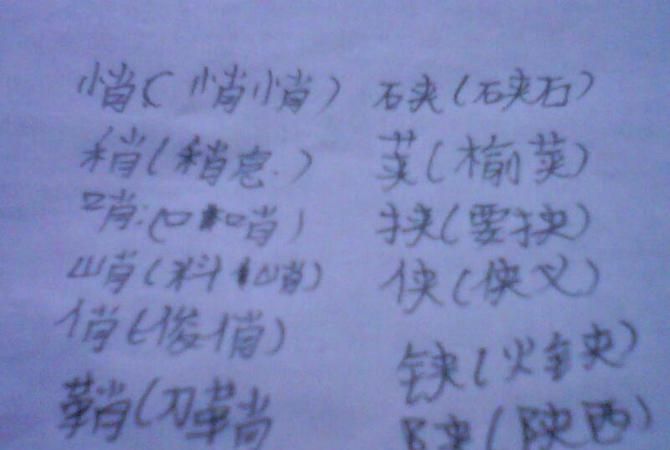 悄(悄悄) 硖(硖石)
稍(稍息) 荚(榆荚)
哨:(口哨) 挟(要挟)
峭(料峭) 侠(侠义)
俏(俊俏) 铗(火铗)
鞘(刀鞘 陕(陕西)